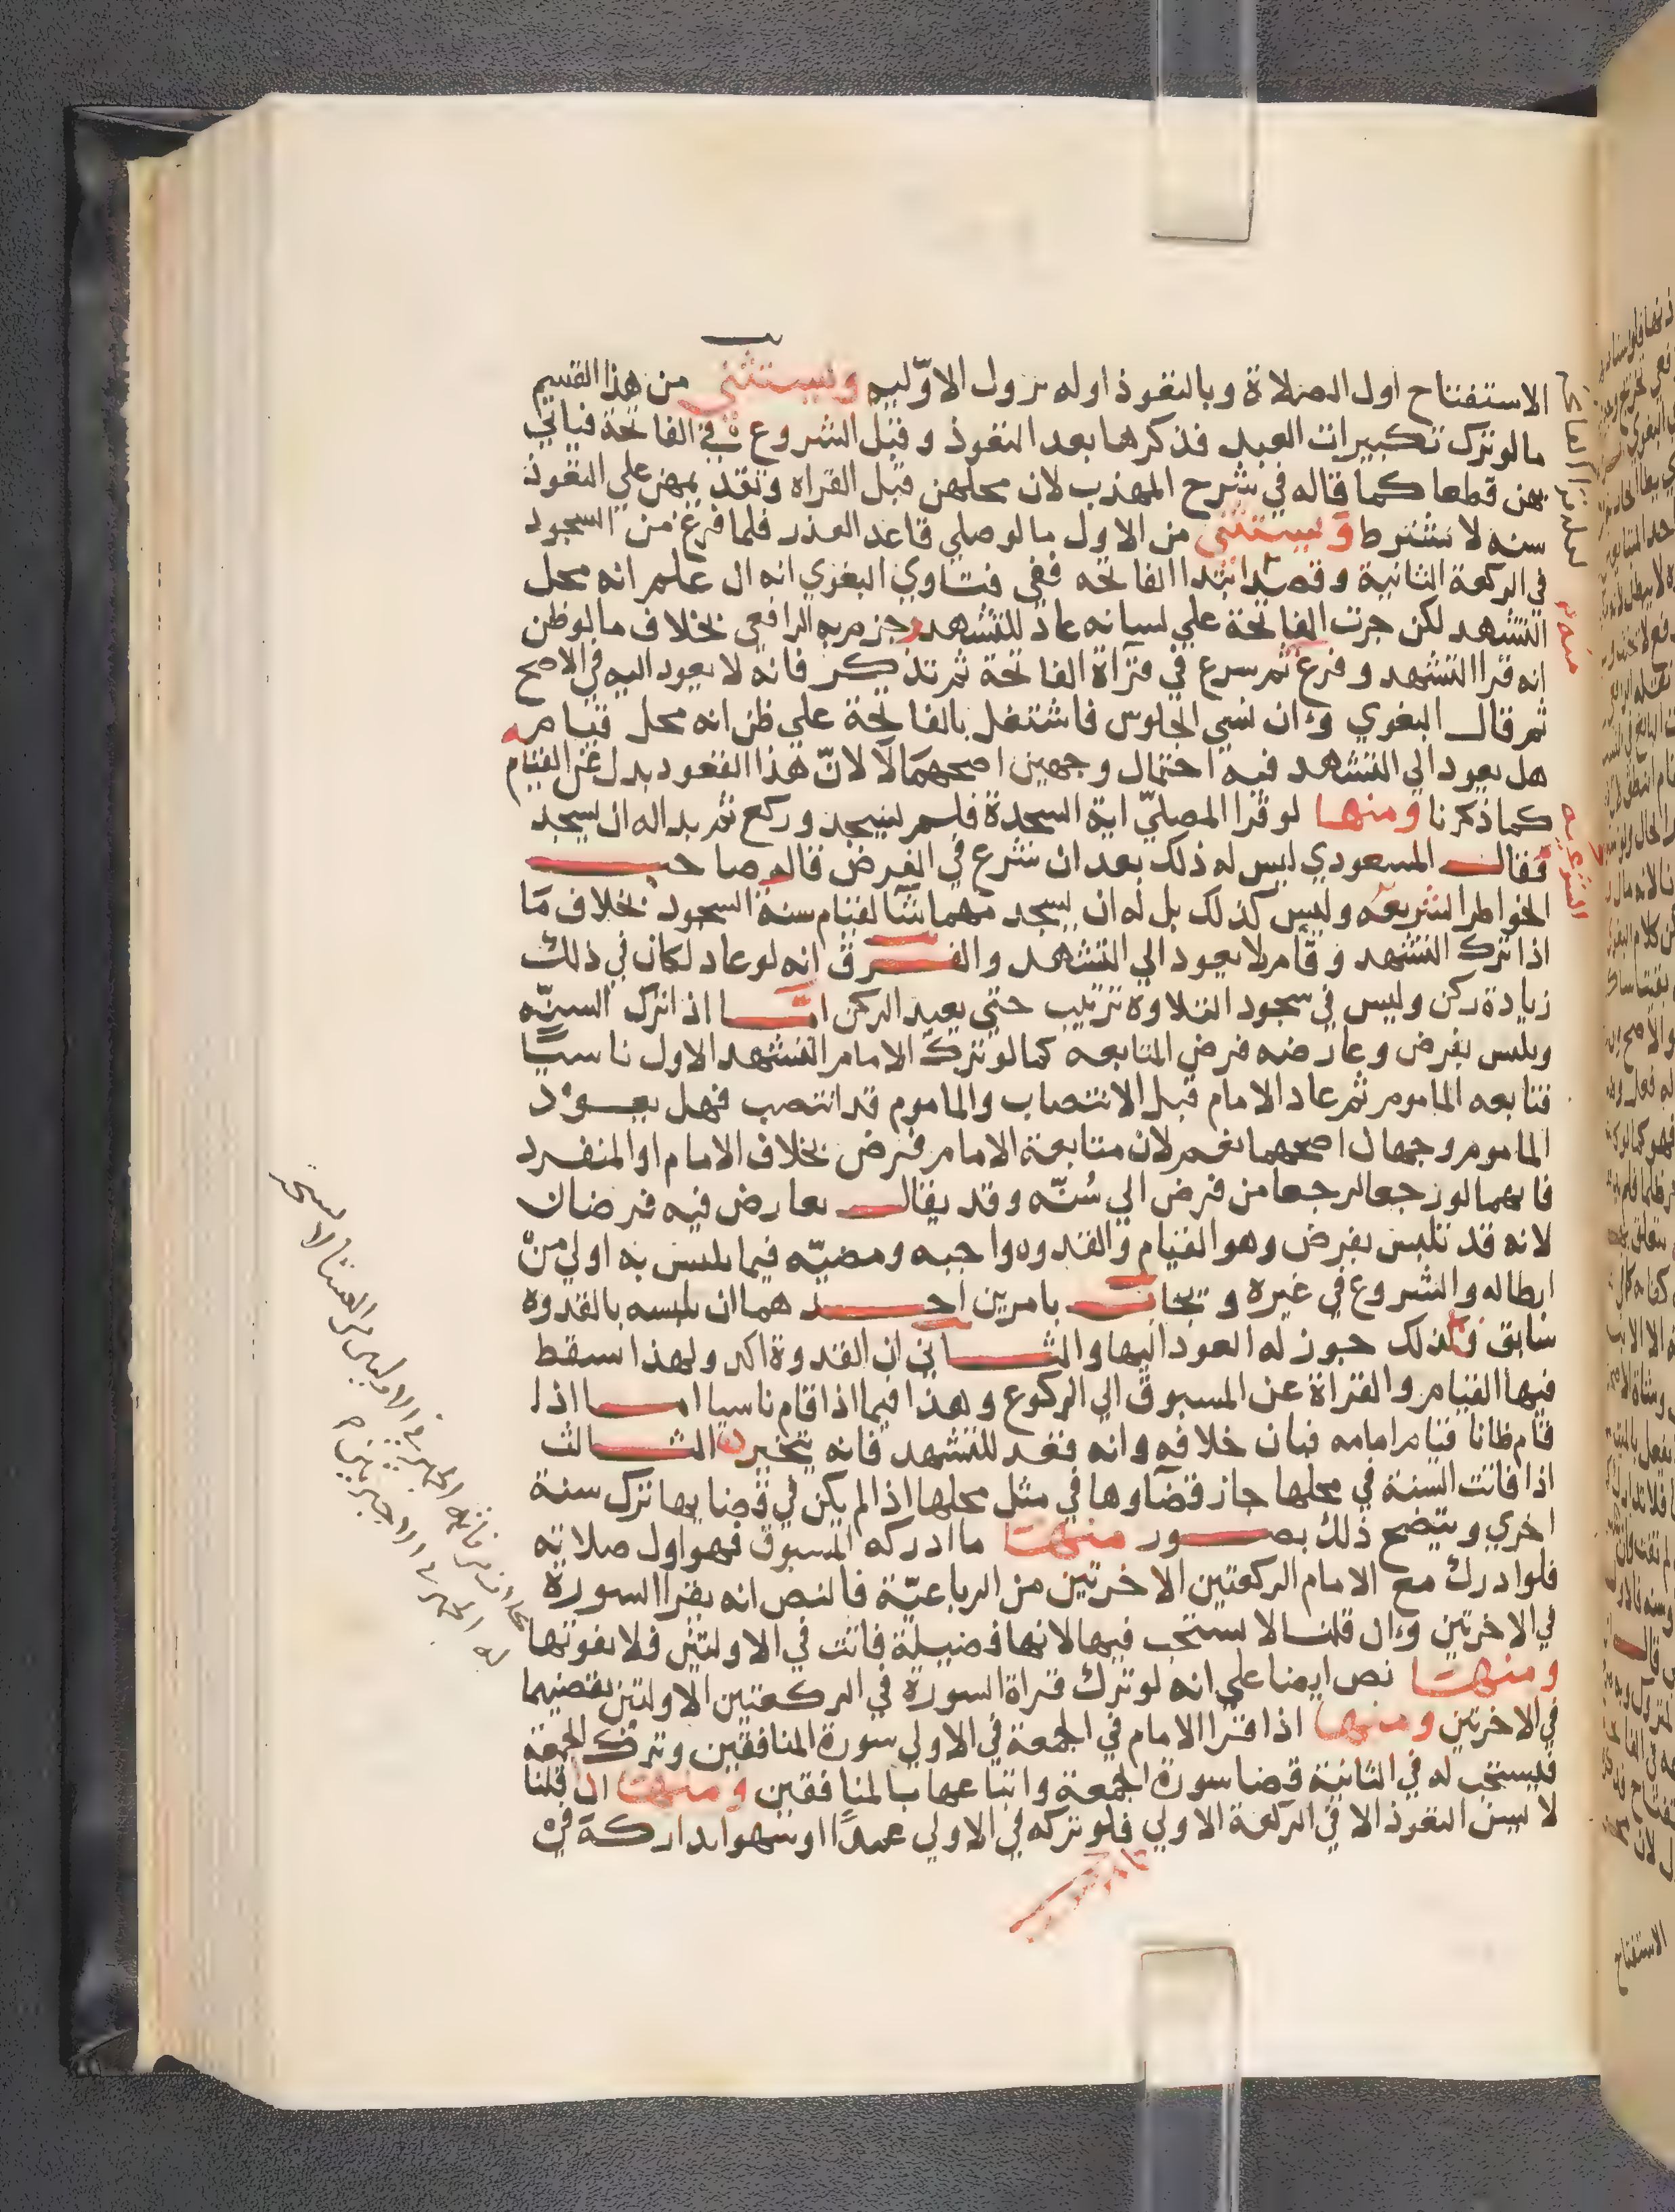 الاستفتاح اول الصلاة وبالتعوذ اوله بزول الاوّليه ويستثنى من هذا القسم
ما لو ترك تكبيرات العيد فذكرها بعد التعوذ وقبل الشروع في الفاتحة فياتي
بهن قطعا كما قاله في شرح المهذب لان محلهن قبل القراه وتقديمهن علي التعوذ
سنه لا شرط ويستثنى من الاول ما لو صلي قاعد العذر فلما فرغ من السجود
في الركعة الثانية وقصد ابتدا الفاتحه ففي فتاوي البغوي انه ان علم انه محل
التشهد لكن جرت الفاتحة علي لسانه عاد للتشهد وجزم به الرافعي بخلاف ما لو ظن
انه قرا التشهد وفرغ ثم سرع في قراة الفاتحة ثم تذكر فانه لا يعود اليه في الاصح
ثم قال البغوي وان نسي الجلوس فاشتغل بالفاتحة علي ظن انه محل قيام
هل يعود الي التشهد فيه احتمال وجهين اصحهما لا لانّ هذا القعود بدل عن القيام
كما ذكرنا ومنها لو قرا المصليّ اية السجدة فلم يسجد وركع ثم بدا له ان يسجد
فقال المسعودي ليس له ذلك بعد ان شرع في الفرض قال صاحب
الخواطر الشريعه وليس كذلك بل له ان يسجد مهما شا لقيام سنة السجود بخلاف ما
اذا ترك التشهد وقام لا يعود الي التشهد والفرق انه لو عاد لكان في ذلك
زيادة ركن وليس في سجود التلاوة ترتيب حتي يعيد الركن امّا اذا ترك السنّه
وتلبس بفرض وعارضه فرض المتابعه كما لو ترك الامام التشهد الاول ناسيًا
فتابعه الماموم ثم عاد الامام قبل الانتصاب والماموم قد انتصب فهل يعود
الماموم وجهان اصحهما نعم لان متابعة الامام فرض بخلاف الامام او المنفرد
فانهما لو رجعا لرجعا من فرض الي سُنّه وقد يقال تعارض فيه فرضان
لانه قد تلبس بفرض وهو القيام والقدوه واجبه ومضيّه فيما تلبس به اولي من
ابطاله والشروع في غيره ويجاب بامرين احدهما ان تلبسه بالقدوة
سابق وكذلك جوز له العود اليها والثاني ان القدوة اكد ولهذا سقط
فيها القيام والقراة عن المسبوق الي الركوع وهذا فيما اذا قام ناسيا اما اذا
قام ظانا قيام امامه فبان خلافه وانه قعد للتشهد فانه يتخير الثالث
اذا فاتت السنة في محلها جاز قضاوها في مثل محلها اذا لم يكن في قضايها ترك سنة
اخري ويتضح ذلك بصور منها ما ادركه المسبوق فهو اول صلاته
فلو ادرك مع الامام الركعتين الاخرتين من الرباعيّة فالنص انه يقرا السورة
في الاخرتين وان قلنا لا يستحب فيها لانها فضيلة فاتت في الاولتين فلا يفوتها
ومنها نص ايضا علي انه لو ترك قراة السورة في الركعتين الاولتين يقضيهما
في الاخرتين ومنها اذا قرا الامام في الجمعة في الاولي سورة المنافقين وترك الجمعة
فيستحب له في الثانية قضا سورة الجمعة واتباعها بالمنافقين ومنها ان قلنا
لا يسن التعوذ الا في الركعة الاولي فلو تركه في الاولي عمدًا او سهوا تداركه في